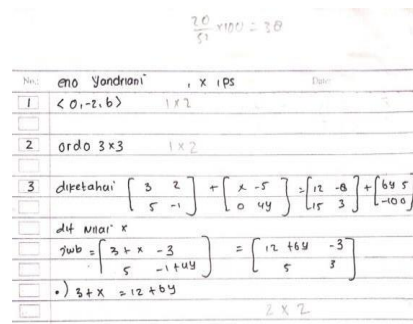 20/51 x100 = 38
No.: eno Yandriani , X IPS Date:
1 <0,-2,6> 1 x 2
2 ordo 3x3 1 x 2
3 diketahui [3 2 5 -1] + [x -5 0 4y] = [12 -8 15 3] + [6y 5 -10 0]
dit Nilai x
jwb = [3+x -3 5 -1+4y] = [12+6y -3 5 3]
•) 3+x = 12+6y
2 x 2